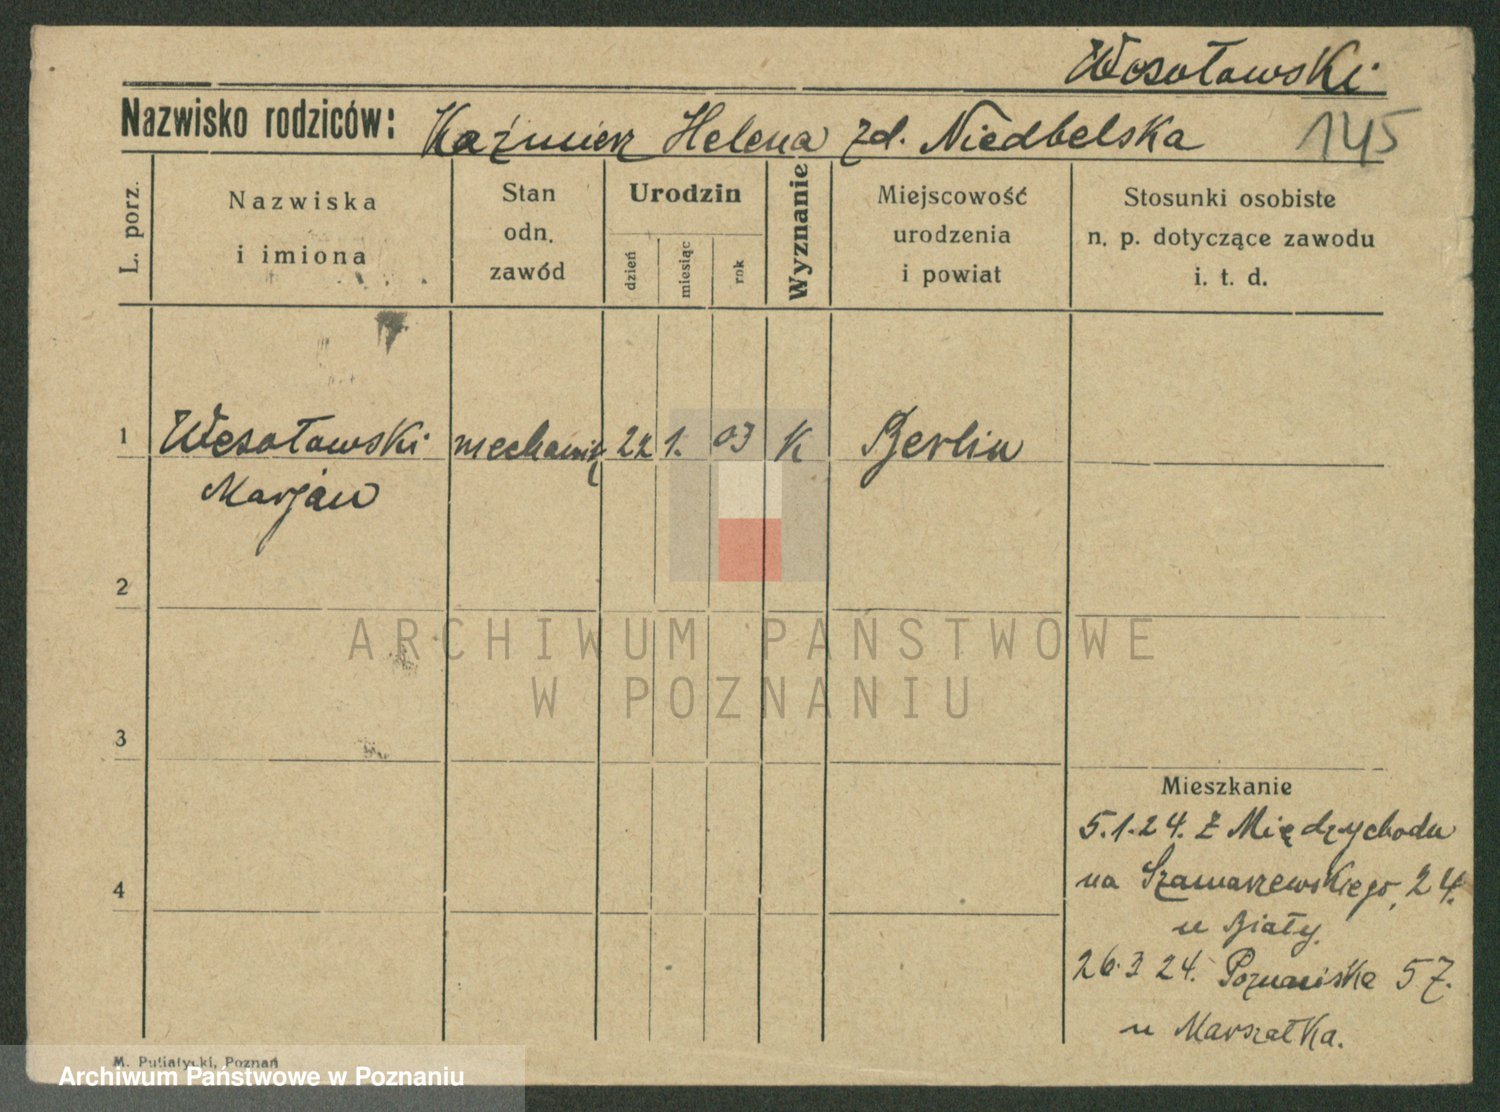 Wesołowski
Nazwisko rodziców: Kaźmierz Helena zd. Niedbelska 145
L. porz.
Nazwiska i imiona
Stan odn. zawód
Urodzin
dzień
miesiąc
rok
Wyznanie
Miejscowość urodzenia i powiat
Stosunki osobiste n. p. dotyczące zawodu i. t. d.
1 Wesołowski mechanik 22 1. 03 K Berlin
Marjan
2
ARCHIWUM PAŃSTWOWE
W POZNANIU
3
Mieszkanie
5.1.24. Z Międzychodu
4
na Szamarzewskiego, 24.
u Biały.
26.3 24. Poznańska 57.
u Marszałka.
M. Putiatycki, Poznań
Archiwum Państwowe w Poznaniu